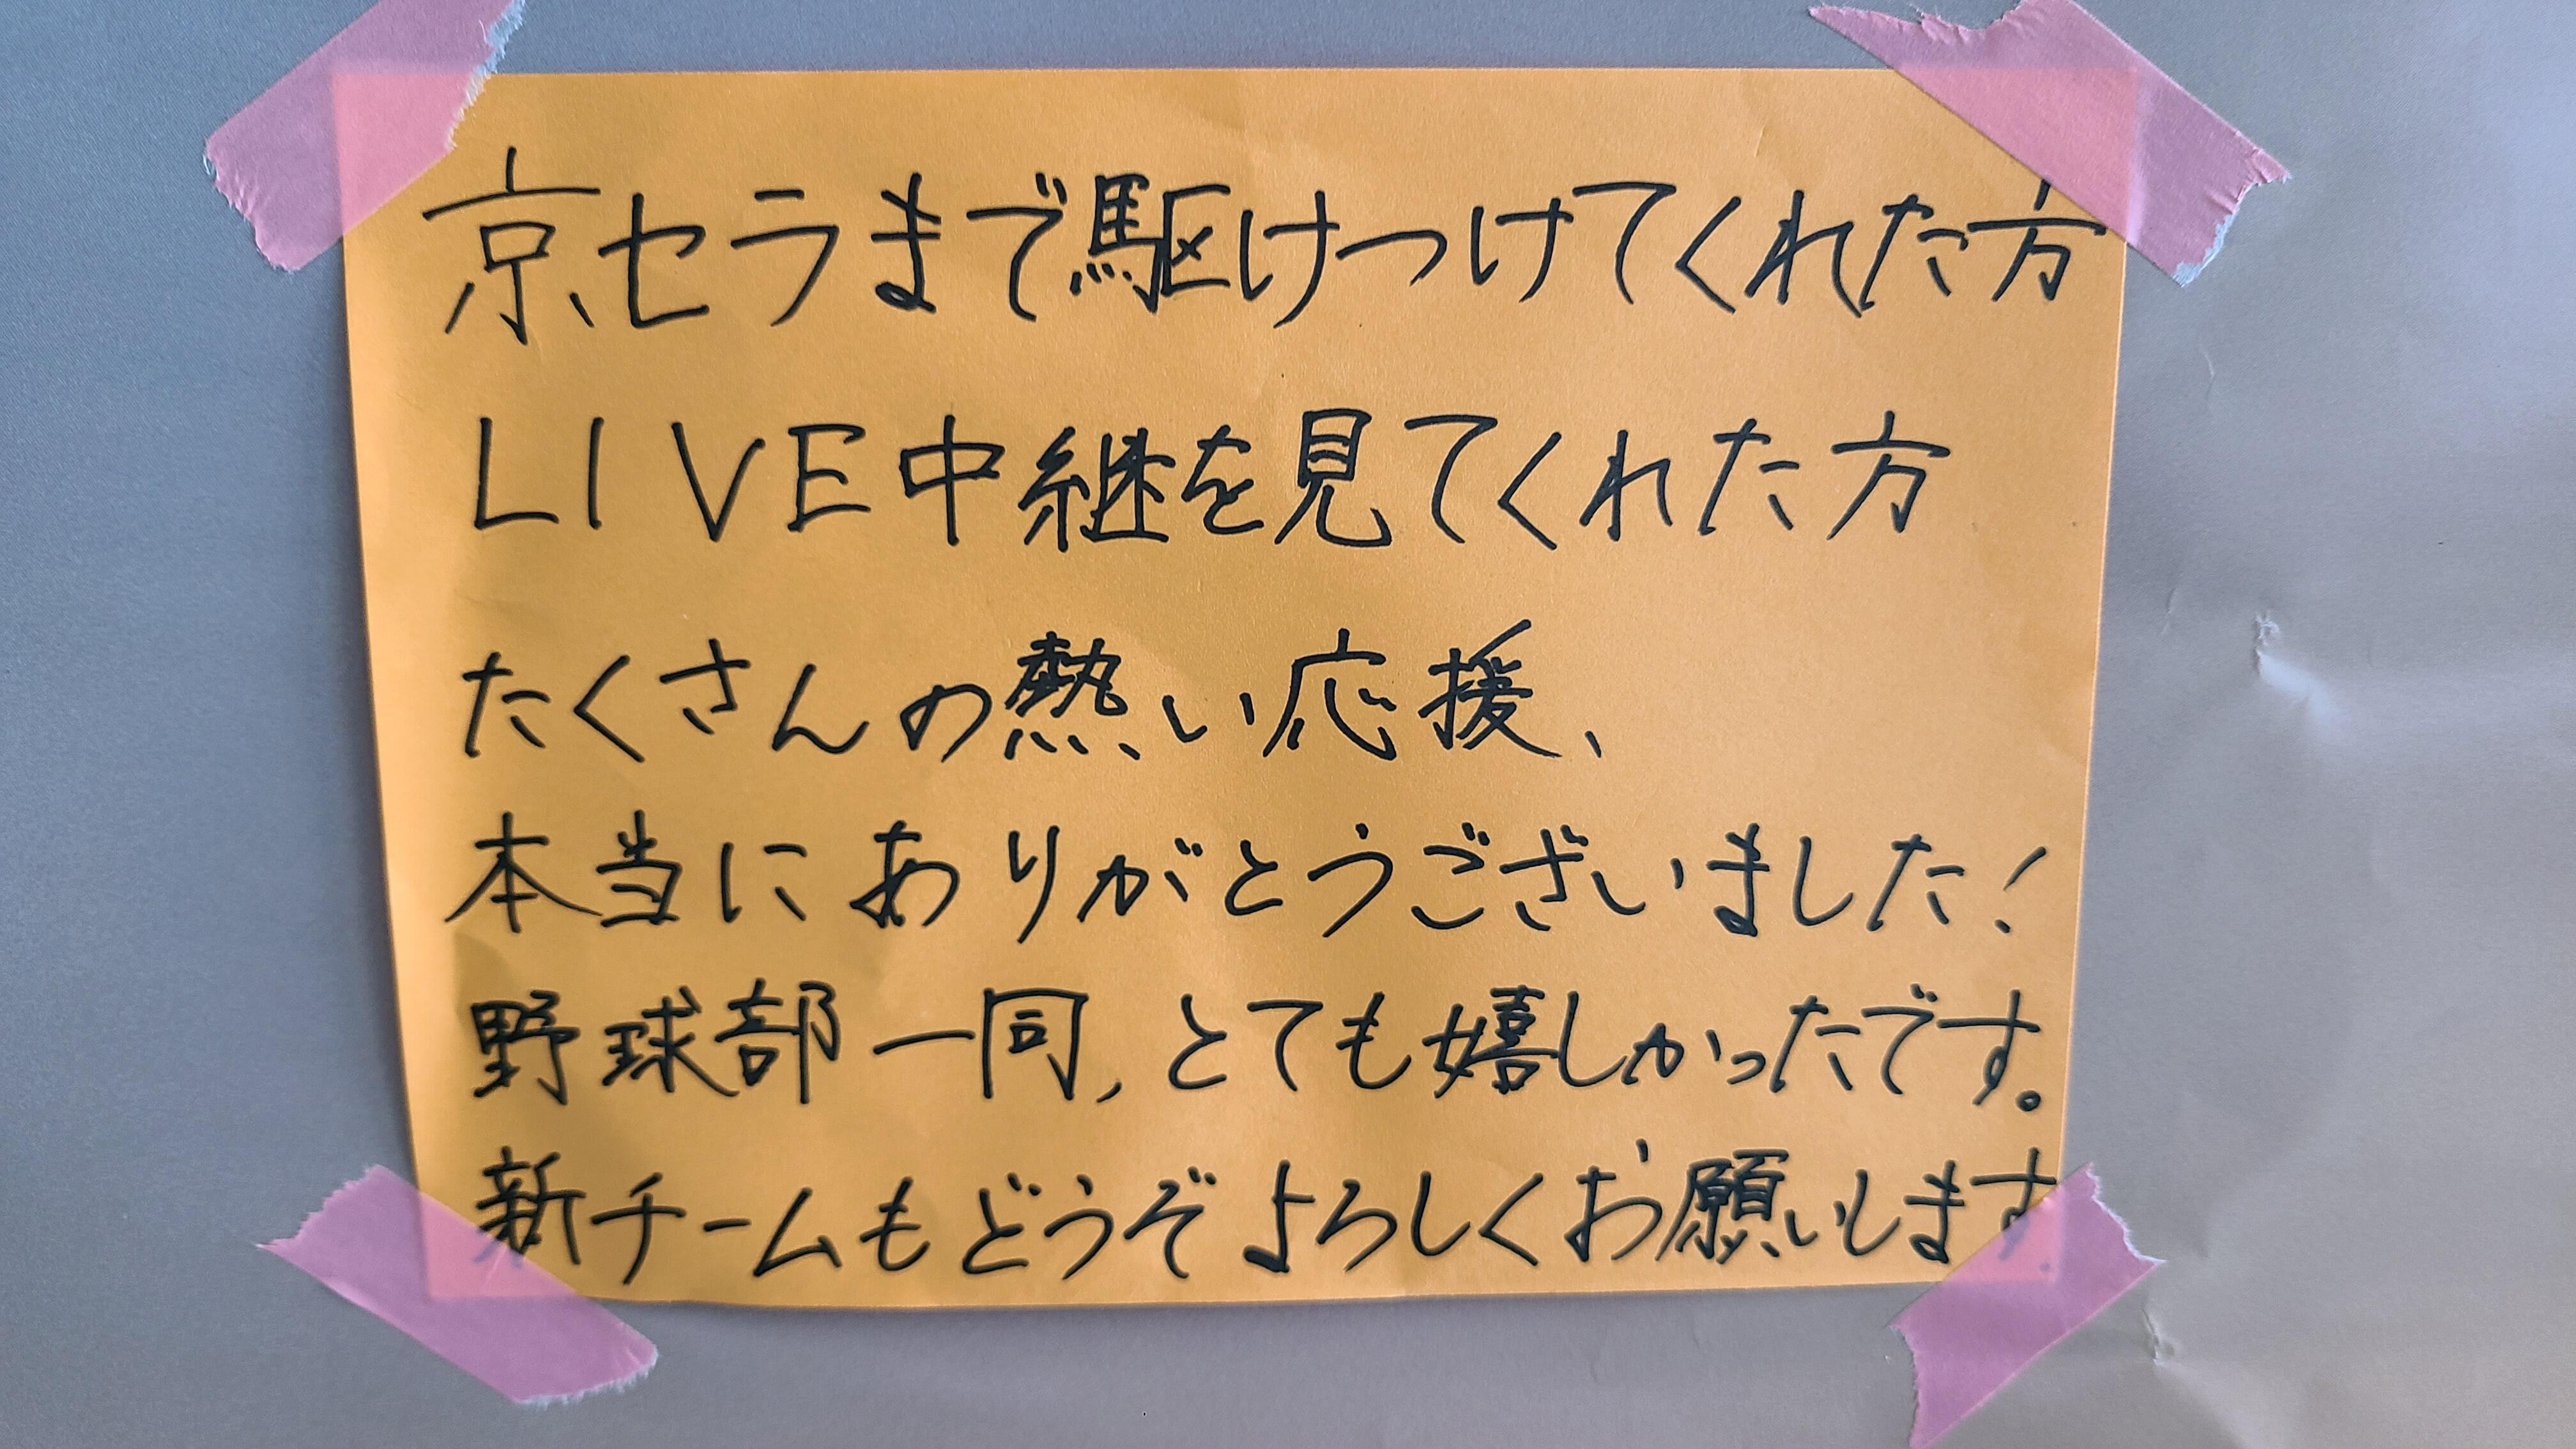 京セラまで駆けつけてくれた方
LIVE中継を見てくれた方
たくさんの熱い応援、
本当にありがとうございました!
野球部一同、とても嬉しかったです。
新チームもどうぞよろしくお願いします.